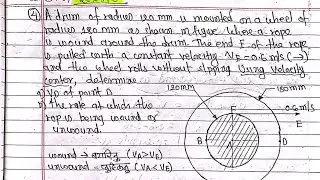 ④ A drum of radius 120 mm is mounted on a wheel of
radius 180 mm as shown in figure where a rope
is wound around the drum. The end E of the rope
is pulled with a constant velocity VE = 0.6 m/s (→)
and the wheel rolls without slipping Using velocity
center, determine
a) VD of point D
b) the rate at which the
rope is being wound or
unwound.
120mm
180mm
F
0.6 m/s
E
B
A
D
wound →  (VA>VE)
unwound →  (VA<VE)